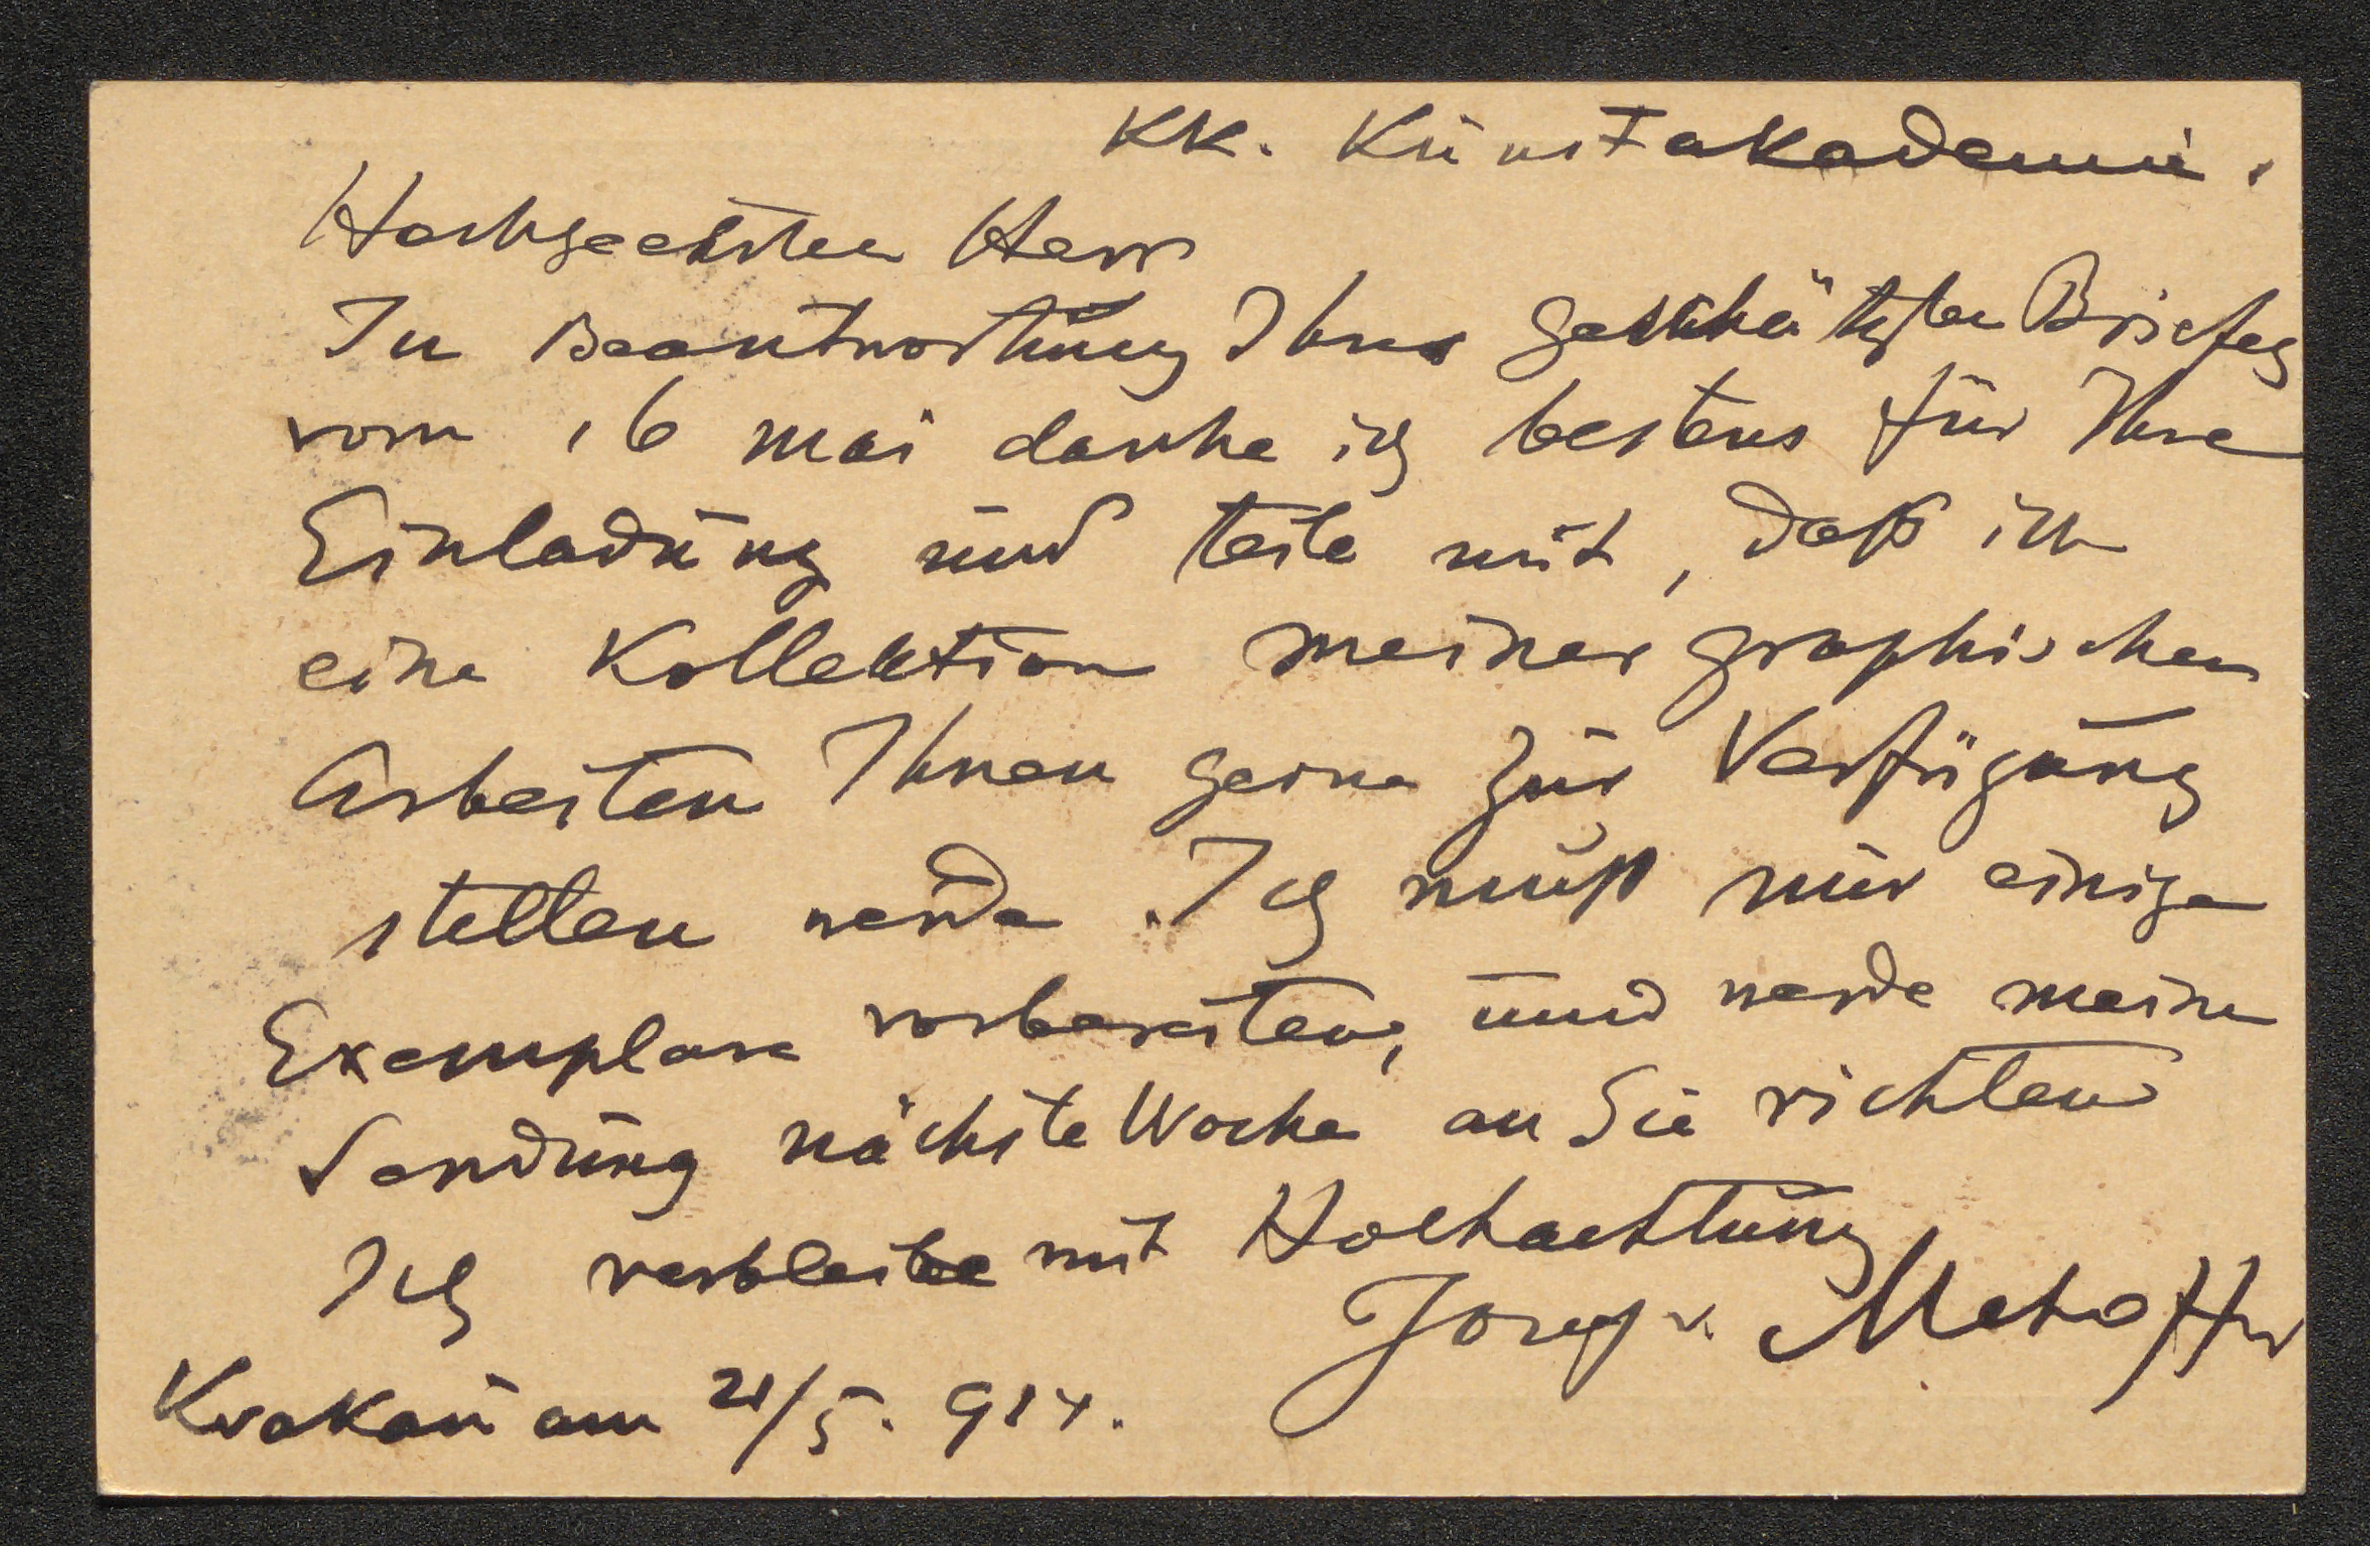 KK. Kunstakademie.
Hochgeehrter Herr
In Beantwortung Ihres geschätzten Briefes
vom 16 Mai danke ich bestens für Ihre
Einladung und teile mit, daß ich
eine Kollektion meiner graphischen
Arbeiten Ihnen gerne zur Verfügung
stellen werde. Ich muß nur einige
Exemplare vorbereiten, und werde meine
Sendung nächste Woche an Sie richten
Ich verbleibe mit Hochachtung
Josef v. Mehoffer
Krakau am 21/5. 914.